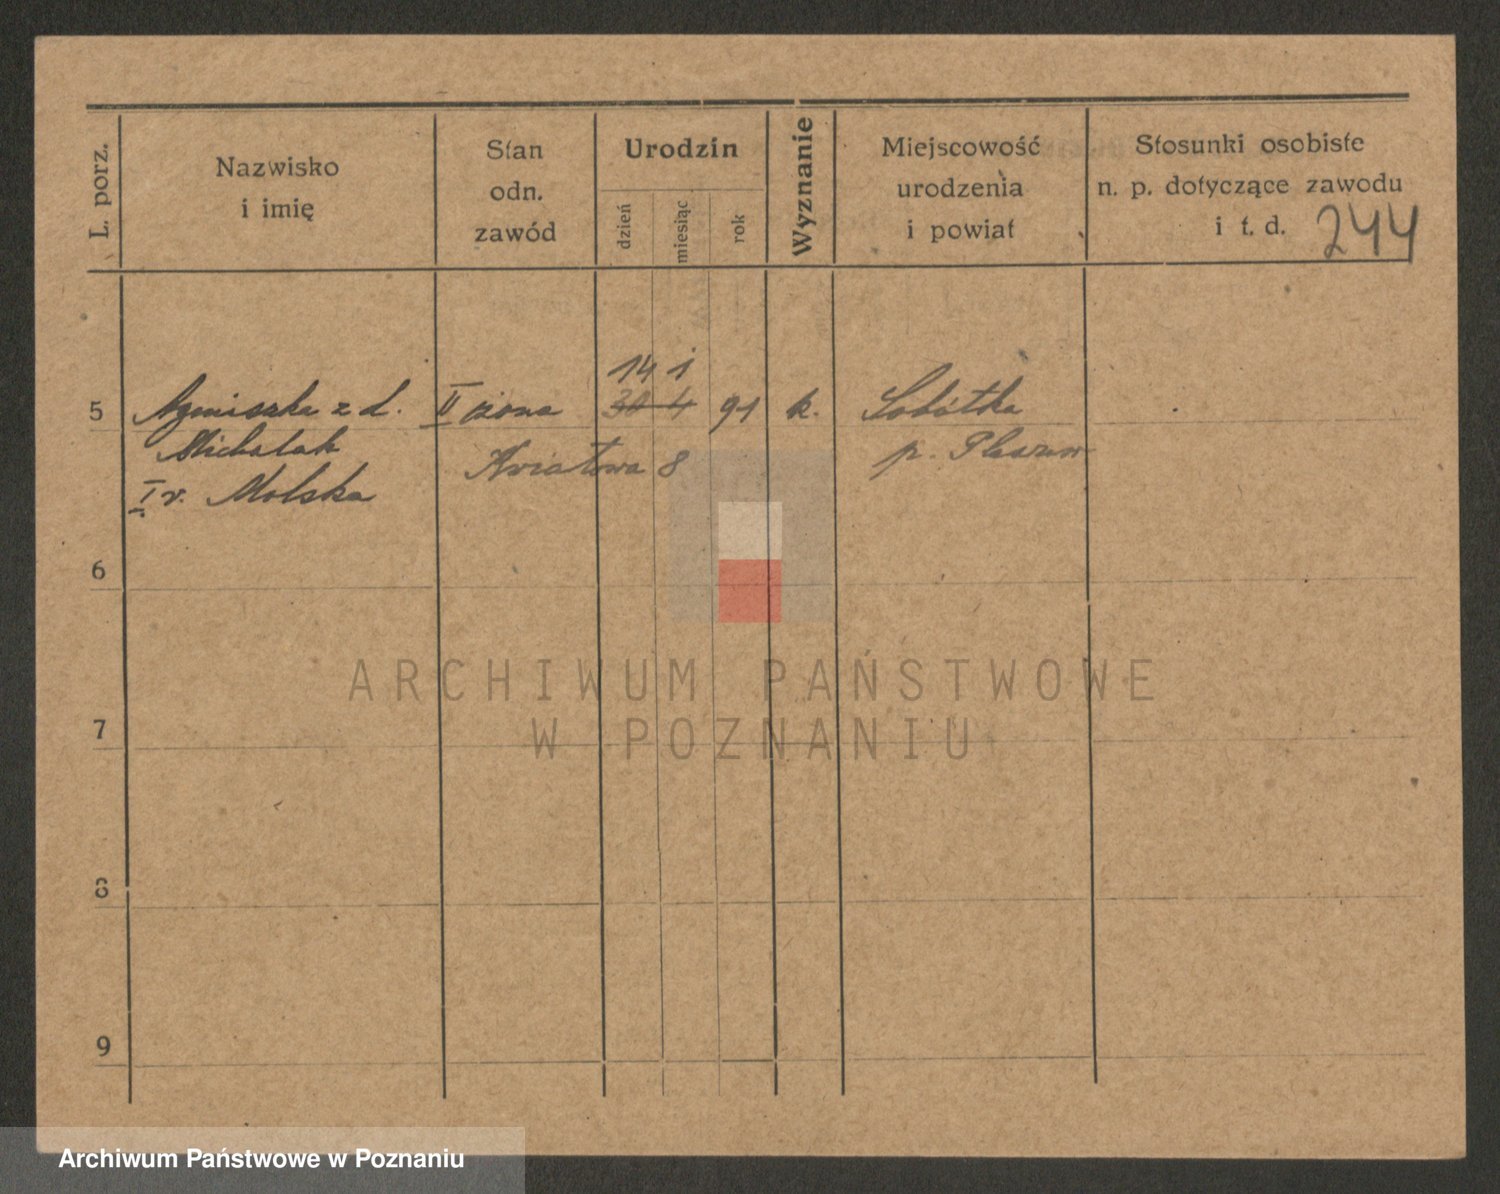 L. porz.
Nazwisko
i imię
Stan
odn.
zawód
Urodzin
dzień
miesiąc
rok
Wyznanie
Miejscowość
urodzenia
i powiat
Stosunki osobiste
n. p. dotyczące zawodu
i t. d.
244
14 1
5 Agnieszka z d. II żona 30 4 91 k. Sobótka
Michalak Kwiatowa 8 p. Pleszew
I v. Molska
6
7
8
9
ARCHIWUM PAŃSTWOWE
W POZNANIU
Archiwum Państwowe w Poznaniu